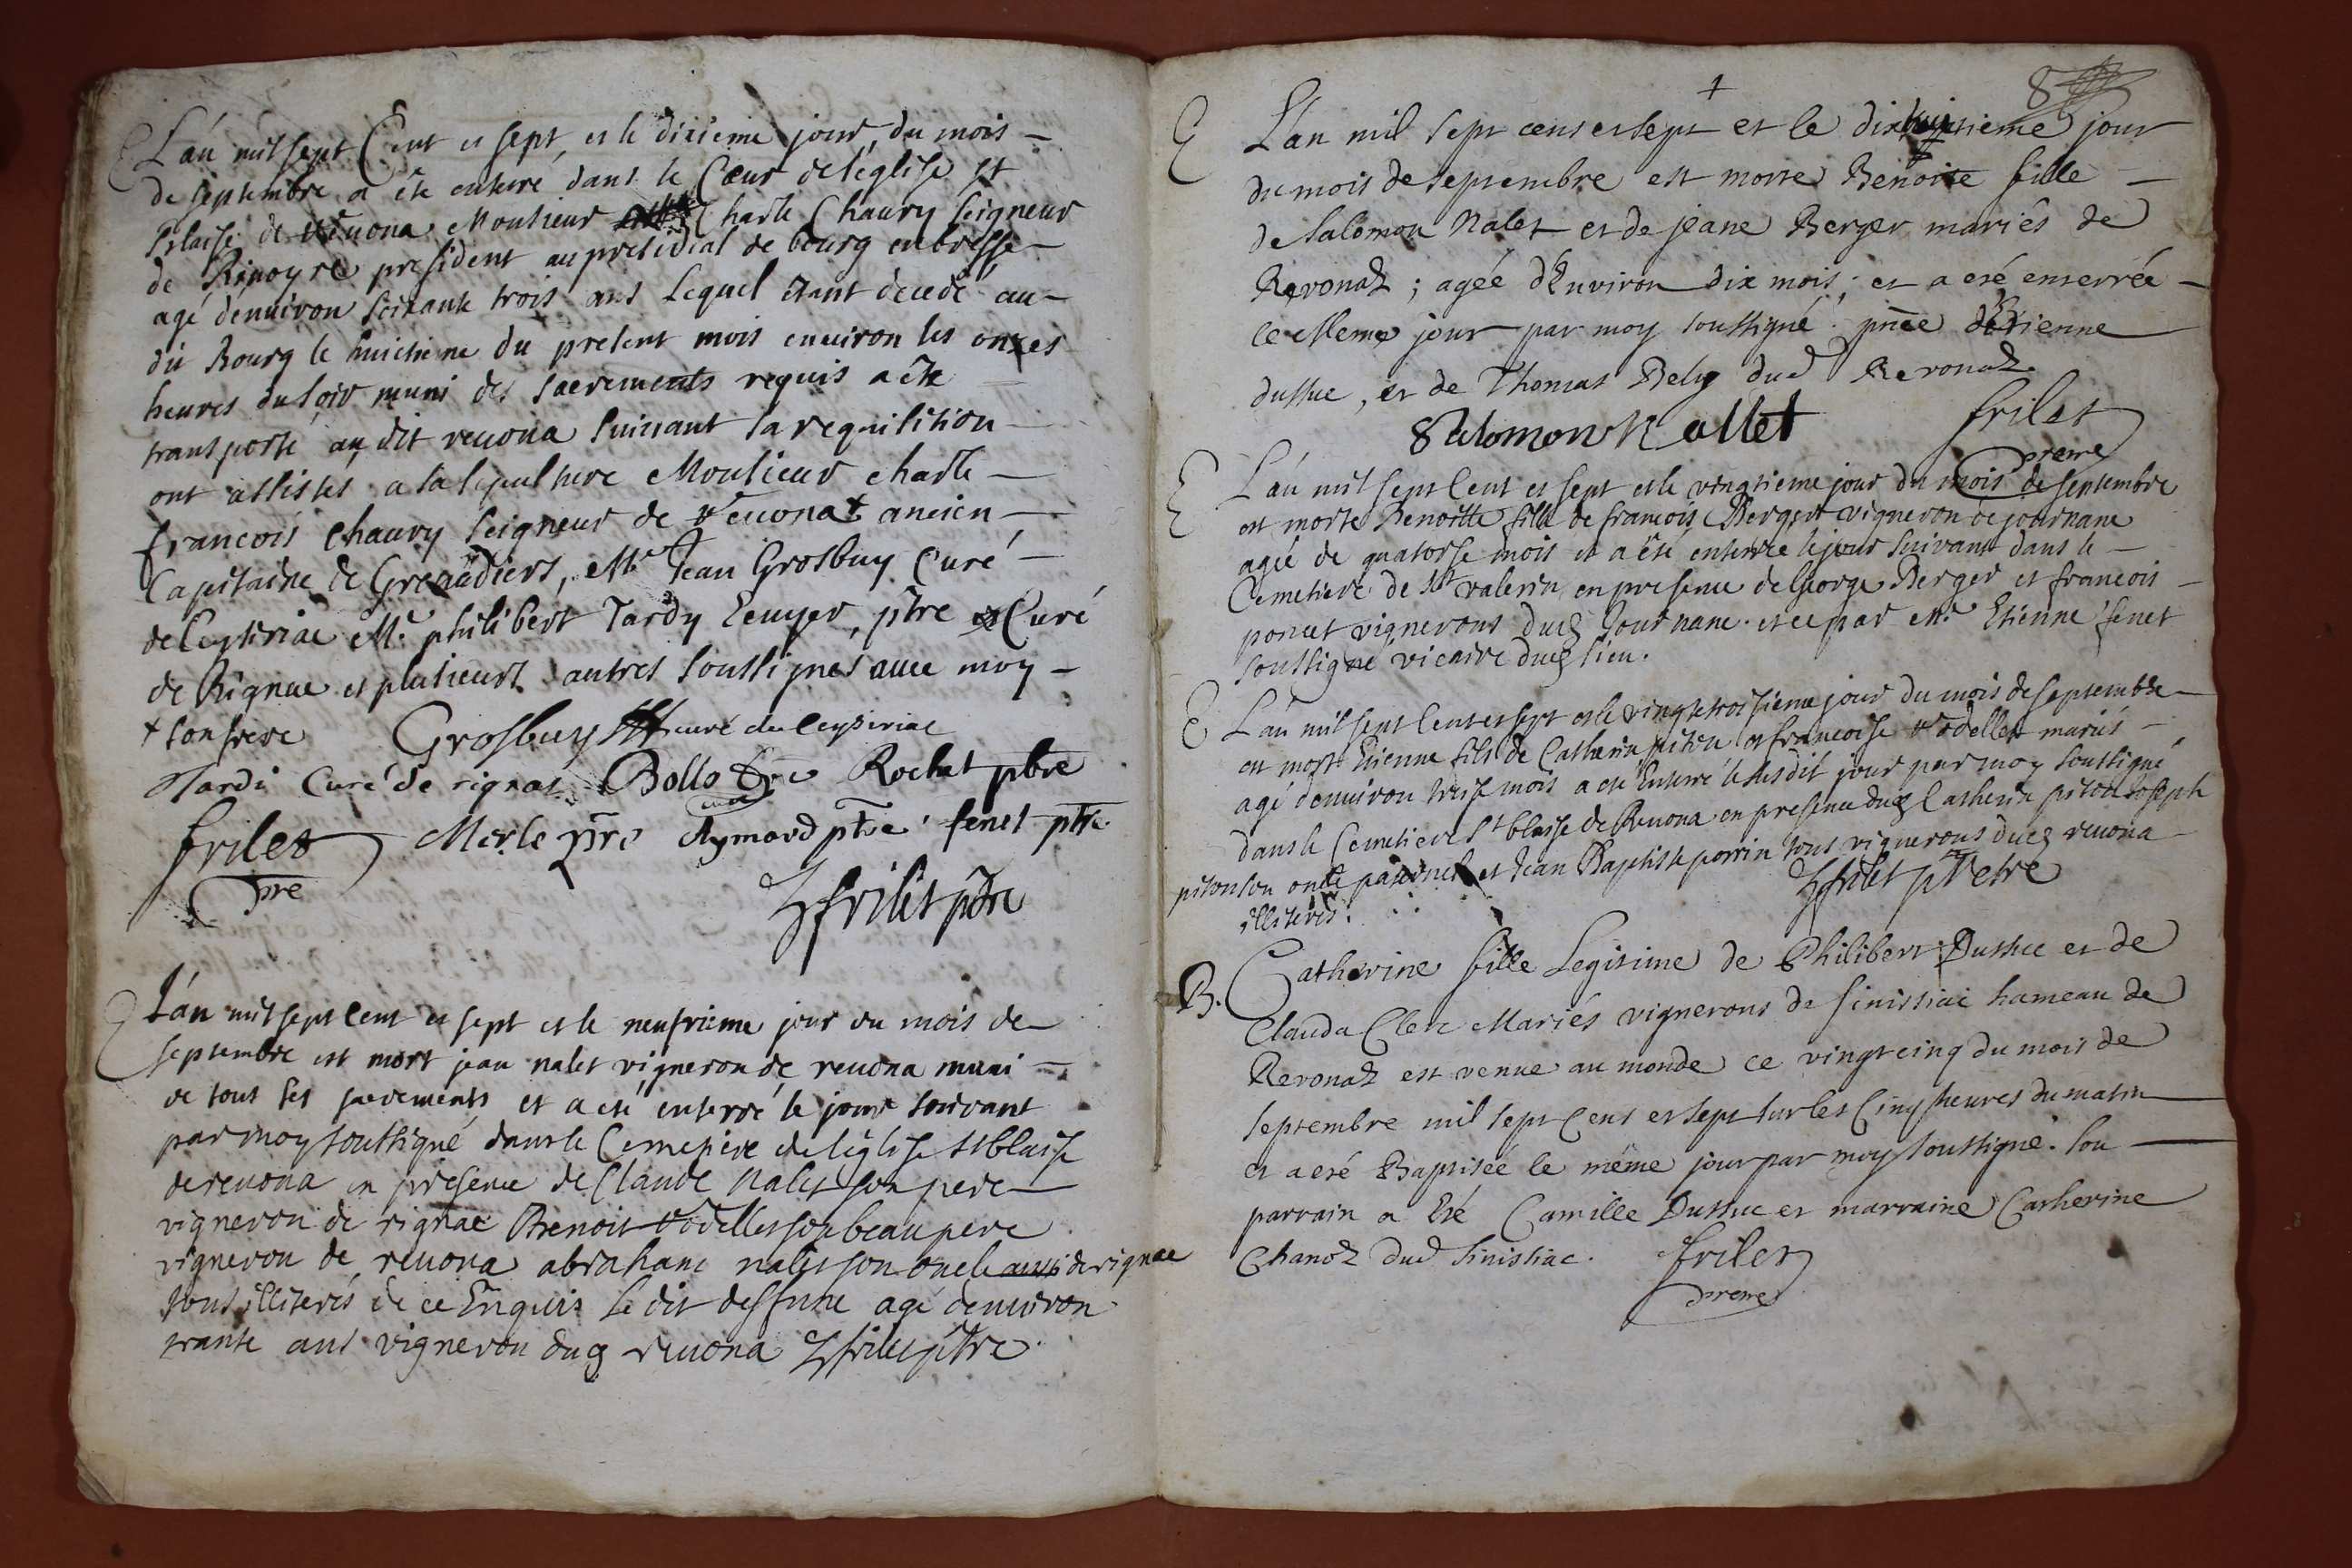 E L'an mil sept Cent et sept et le dixieme jour du mois
de septembre a été enterré dans le Cœur de leglise st
blaise de Reuona Monsieur Charle Chaury seigneur
de Rinoyre president au presidial de bourg en bresse
agé denuiron soixante trois ans Lequel etant decedé au
dit Bourg le huictieme du present mois enuiron les onzes
heures du soir muni des sacrements requis a été
transporté au dit reuona suiuant sa requisition
ont assistes a sa sepulture Monsieur charle
francois Chaury seigneur de Reuona + ancien
Capitaine de Grenadiers, Mr Jean Grosbuy Curé
de Ceyseriac Mr philibert Tardy Ecuyer, ptre Curé
de Rignac et plusieurs autres soussignes auec moy
+ son frere Grosbuy curé de Ceyseriac
Tardi Curé de rignat Bollo Rochet pbre
frilet Merle ptre Aymard ptre fenet ptre
pre
frilet ptre
E L'an mil sept Cent et sept et le neufvieme jour du mois de
septembre est mort jean nalet vigneron de reuona muni
de tous ses sacrements et a eté enterré le jour suivant
par moy soussigné dans le Cemetiere de leglise st blaise
de reuona en presence de Claude Nalet son pere
vigneron de rignac Benoit vodellet son beau pere
vigneron de reuona abraham nalet son oncle aussi de rignac
tous illiterés de ce Enquis le dit deffunt agé denuiron
trante ans vigneron dud reuona frilet ptre
+
8
E L'an mil sept cens et sept et le dixhuictieme jour
du mois de septembre est morte Benoite fille
de Salomon Nalet et de jeane Berger mariés de
Revonaz ; agée d'Environ dix mois ; et a eté enterrée
le Meme jour par moy soussigné pnce d'Etienne
dussuc, et de Thomas Bely dud Revonaz.
Salomon Nallet frilet
pretre
E L'an mil sept Cent et sept et le vingtieme jour du mois de septembre
est morte Benoitte fille de francois Berger vigneron de journanc
agée de quatorse mois et a été enterrée le jour suivant dans le
Cemetiere de st valerin en presence de George Berger et francois
poncet vignerons dud Journanc. et ce par Mr Etienne fenet
soussigné vicaire dud lieu.
E L'an mil sept Cent et sept et le vingtetroisieme jour du mois de septembre
est mort Etienne fils de Catherin piton et francoise vodellet mariés
agé denuiron treise mois a eté Enterré le susdit jour par moy soussigné
dans le Cemetiere st blaise de Reuona en presence dud Catherin piton Joseph
piton son oncle paternel et Jean Baptiste perrin tous vignerons dud reuona
illiterés. frilet pretre
B. Catherine fille Legitime de Philibert Dussuc et de
Clauda Clerc Mariés vignerons de sinissiac hameau de
Revonaz est venue au monde ce vingt cinq du mois de
septembre mil sept Cens et sept sur les Cinq heures du matin
et a eté Baptisée le même jour par moy soussigné. son
parrain a Eté Camille Dussuc et marraine Catherine
Chanoz dud sinissiac. frilet
pretre